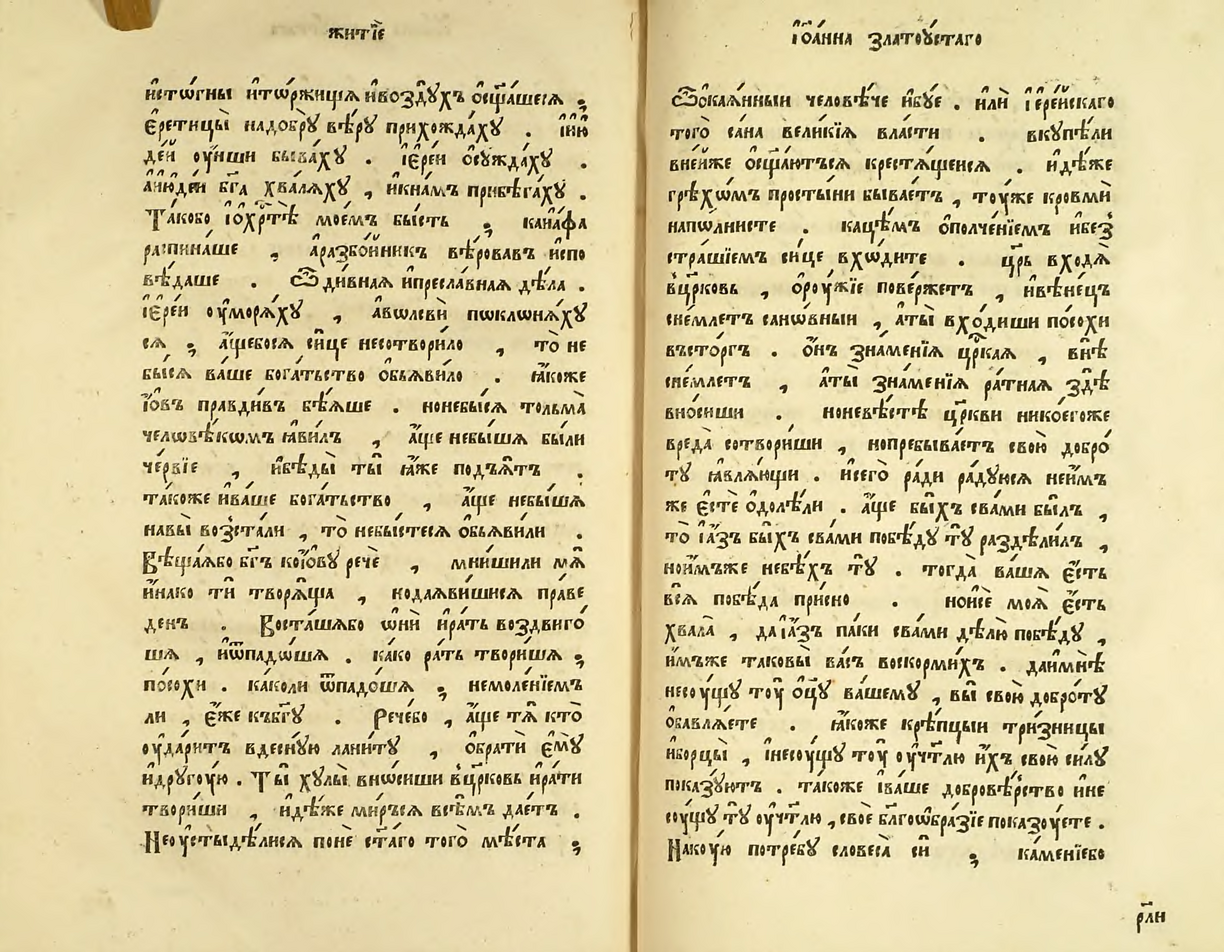 житїе
и҆сто́гны и҆то́ржищѧ и҆во́здꙋхъ ѡ҆сщ҃а́шесѧ ;
є҆рети́цы надо́брꙋ вѣ́рꙋ прихожда́хꙋ . і҆и҆ю
де́и оу҆́ниши быва́хꙋ . і҆ере́и ѡ҆сꙋжда́хꙋ .
а҆ию́деи бг҃а хвалѧ́хꙋ , и҆кна́мъ прибѣга́хꙋ .
Та́кобо і҆ѡ҆хрⷭ҇тѣ̀ мое́мъ бы́сть ; каиа́фа
распина́ше , а҆разбо́йникъ вѣ́ровавъ и҆спо
вѣ́даше . Ѽ ди́внаѧ и҆пресла́внаѧ дѣ́ла .
і҆ере́и оу҆морѧ́хꙋ , а҆вѡ́лсви пѡклѡнѧ́хꙋ
сѧ ; а҆́щебосѧ си́це несотвори́ло , то̀ не
бы́сѧ ва́ше бога́тьство ѡ҆бьѧви́ло . ꙗ҆́коже
і҆́ѡвъ пра́вдивъ бѣ́ѧше . нонебы́сѧ тольма̀
челѡвѣ́кѡмъ ꙗ҆ви́лъ , а҆́ще небы́шѧ бы́ли
че́рвїе , и҆бѣ́ды ты̀ ꙗ҆́же подъѧ́тъ .
та́коже и҆ва́ше бога́тьство , а҆́ще небы́шѧ
навы̀ возста́ли , то̀ небы́стесѧ ѡ҆бьѧви́ли .
Вѣща́ѧбо бг҃ъ коі҆́ѡвꙋ речѐ , мни́шили мѧ̀
и҆́нако тѝ творѧ́ща , нодаѧви́шисѧ пра́ве
денъ . Воста́шѧбо ѡ҆нѝ и҆ра́ть воздви́го
шѧ , и҆ѿпадо́шѧ . ка́ко ра́ть твори́шѧ ;
по́сохи . ка́коли ѿпадо́шѧ ; немоле́нїемъ
ли , є҆́же къбг҃ꙋ . Рече́бо , а҆́ще тѧ̀ кто̀
оу҆да́ритъ вдеснꙋ́ю лани́тꙋ , ѡ҆братѝ є҆мꙋ̀
и҆дрꙋгꙋ́ю . Ты̀ хꙋлы̀ вно́сиши вцр҃ковь и҆ра́ти
твори́ши , и҆дѣ́же ми́рьсѧ всѣ́мъ дае́тъ .
Неоу҆стыдѣ́лисѧ понѐ ст҃а́го того̀ мѣ́ста ;
і҆ѡа́нна златоꙋ́стаго
Ѽ ѻ҆каѧ́нныи человѣ́че и҆бꙋ́е . и҆лѝ і҆ере́йскаго
того̀ са́на вели́кїѧ вла́сти . вкꙋпѣ́ли
вне́йже ѡ҆сщ҃а́ютъсѧ крестѧ́щеисѧ . и҆дѣ́же
грѣхѡ́мъ просты́ни быва́етъ , тоу҆́же кровмѝ
напо́лнисте . ка́цѣмъ ѡ҆полче́нїемъ и҆без̾
стра́шїемъ си́це вхо́дите . цр҃ь входѧ̀
вцр҃ковь , ѻ҆рꙋ́жїе пове́ржетъ , и҆вѣне́цъ
сне́млетъ сано́вныи , а҆ты̀ вхо́диши по́сохи
въсто́ргъ . ѻ҆́нъ зна́менїѧ цр҃каѧ , внѣ̀
сне́млетъ , а҆ты̀ зна́менїѧ ра́тнаѧ здѣ̀
вно́сиши . ноневѣ́стѣ цр҃кви нико́егоже
вреда̀ сотвори́ши , нопребыва́етъ свою̀ добро
тꙋ̀ ꙗ҆влѧ́ющи . и҆сего̀ ра́ди ра́дꙋисѧ неи҆́мъ
же є҆стѐ ѡ҆долѣ́ли . а҆́ще бы́хъ сва́ми бы́лъ ,
то̀ і҆а́зъ бы́хъ сва́ми побѣ́дꙋ тꙋ̀ раздѣли́лъ ,
нои́мъже небѣ́хъ тꙋ̀ . тогда̀ ва́ша є҆́сть
всѧ̀ побѣ́да при́сно . ноисѐ моѧ̀ є҆́сть
хвала̀ , даі҆а́зъ па́ки сва́ми дѣлю̀ побѣ́дꙋ ,
и҆́мъже таковы̀ ва́съ воскорми́хъ . даимнѣ̀
несоу́щꙋ тоу҆̀ ѻ҆ц҃ꙋ̀ ва́шемꙋ , вы̀ свою̀ добро́тꙋ
ѡ҆бавлѧ́ете . ꙗ҆́коже крѣ́пцыи три́зницы
и҆борцы̀ , і҆несоу́щꙋ тоу҆̀ оу҆чт҃лю и҆́хъ свою̀ си́лꙋ
пока́зꙋютъ . та́коже і҆ва́ше добровѣ́рство и҆не
соу́щꙋ тꙋ̀ оу҆чт҃лю , своѐ бл҃гоѡбра́зїе показоу́ете .
Накꙋ́ю потре́бꙋ словеса̀ сѝ ; ка́менїебо
рли